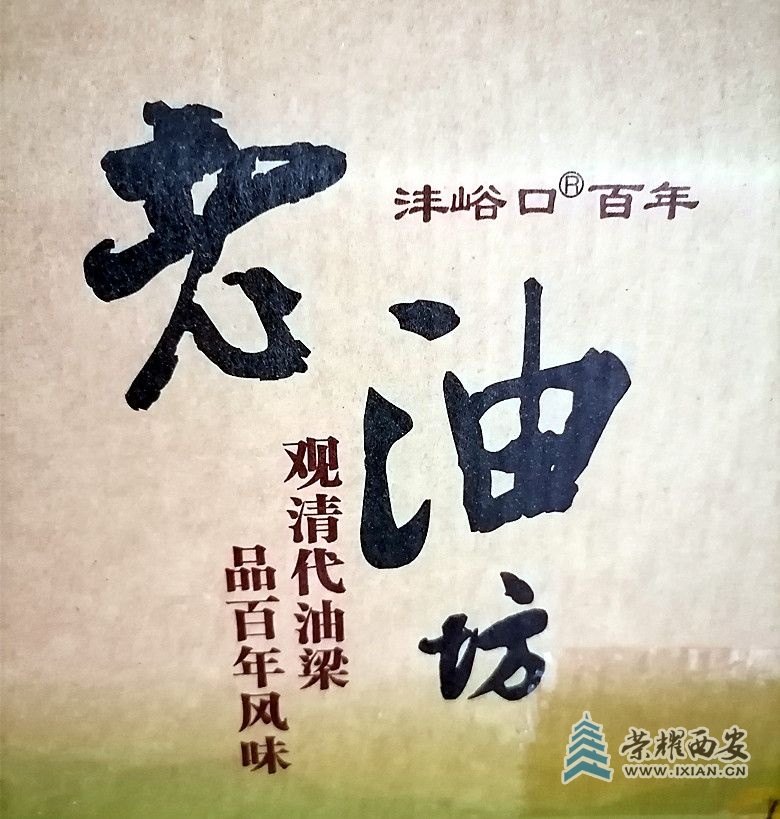 沣峪口®百年
老油坊
观清代油梁
品百年风味
荣耀西安
WWW.IXIAN.CN